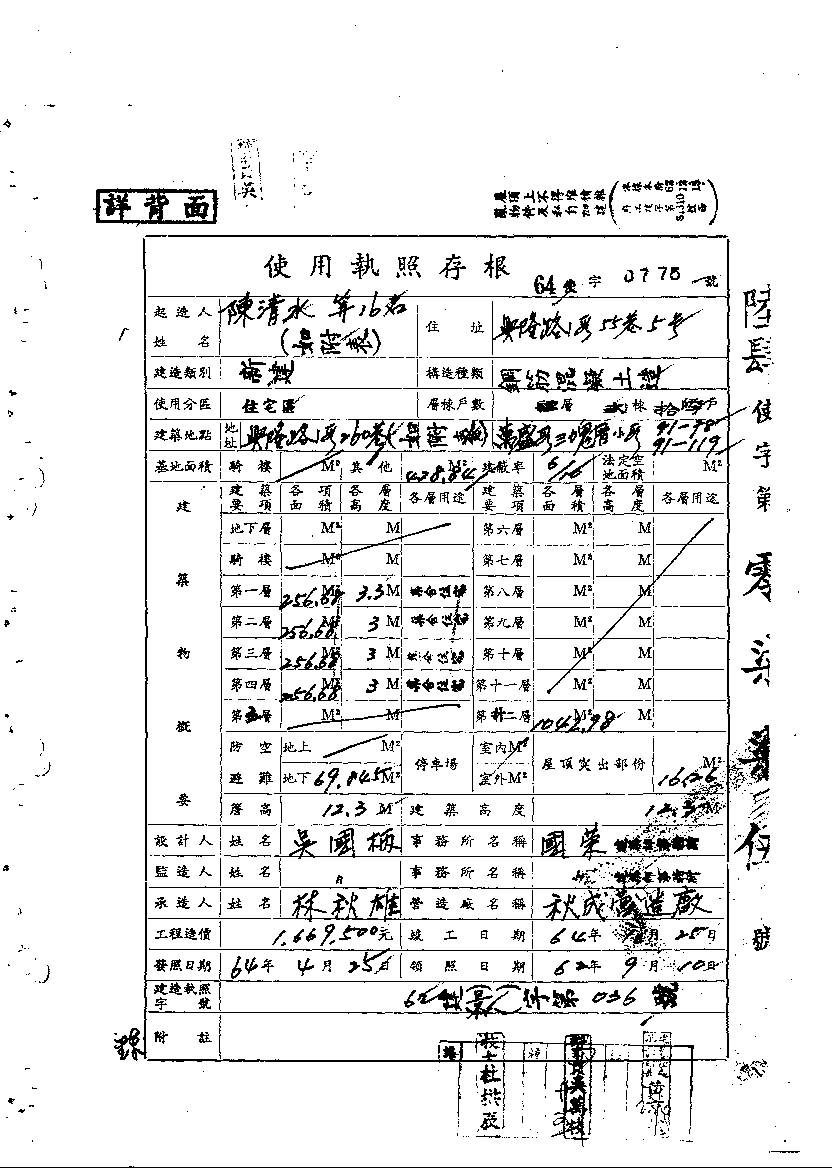 詳背面
使用執照存根
64使字 0775 號
起造人姓名 陳清水等16名(如附表) 住址 興隆路1段55巷5号
建造類別 新建 構造種類 鋼筋混凝土造
使用分區 住宅區 層棟戶數 層 棟 戶
建築地點 地址 興隆路1段260巷 萬盛段 91-98 91-119
基地面積 騎樓 M² 其他 428.64 M² 建蔽率 6/10 法定空地面積 M²
建築物概要
建築要項 各項面積 各層高度 各層用途 建築要項 各層面積 各層高度 各層用途
地下層 M² M 第六層 M² M
騎樓 M² M 第七層 M² M
第一層 256.68 M² 3.3 M 集合住宅 第八層 M² M
第二層 256.68 M² 3 M 集合住宅 第九層 M² M
第三層 256.68 M² 3 M 集合住宅 第十層 M² M
第四層 256.68 M² 3 M 集合住宅 第十一層 M² M
第五層 M² M 第十二層 1042.98 M² M
防空避難 地上 M² 停車場 室內M² 屋頂突出部份 16.26 M²
地下 69.845 M² 室外M²
簷高 12.3 M 建築高度 12.3 M
設計人 姓名 吳國柄 事務所名稱 國榮
監造人 姓名 〃 事務所名稱 〃
承造人 姓名 林秋雄 營造廠名稱 秋成營造廠
工程造價 1,669,500元 竣工日期 64年 月25日
發照日期 64年4月25日 領照日期 62年9月10日
建造執照字號 62建(景)字第036號
附註
陸肆使字第零柒柒伍號